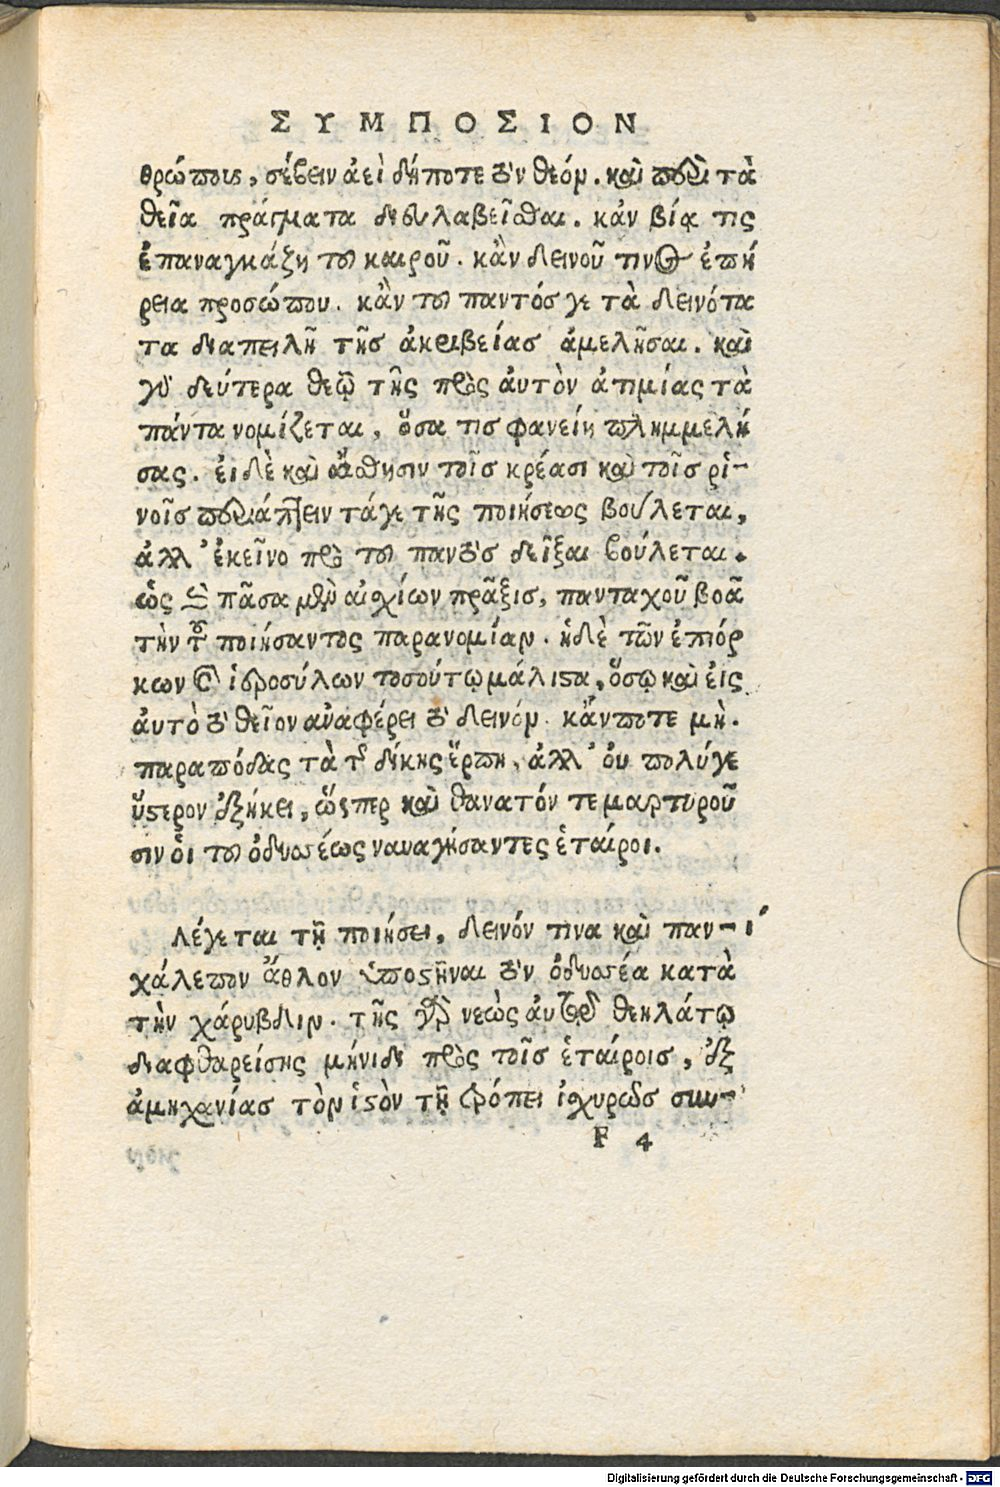 ΣΥΜΠΟΣΙΟΝ
θρώποις, σέβειν ἀεὶ δήποτε τὸν θεόν. καὶ περὶ τὰ
θεῖα πράγματα διευλαβεῖσθαι. κἀν βίᾳ τις
ἐπαναγκάζῃ τοῦ καιροῦ. κἂν δεινοῦ τινος ἐπή
ρεια προσώπου. κἂν τοῦ παντός γε τὰ δεινότα
τα διαπειλῇ τῆς ἀκριβείας ἀμελῆσαι. καὶ
γὰρ δεύτερα θεῷ τῆς πρὸς ἀυτὸν ἀτιμίας τὰ
πάντα νομίζεται, ὅσα τις φανείη πλημμελή
σας. ἐι δὲ καὶ αἴσθησιν τοῖς κρέασι καὶ τοῖς ῥι-
νοῖς περιάπτειν τά γε τῆς ποιήσεως βούλεται,
ἀλλ' ἐκεῖνο πρὸ τοῦ παντὸς δεῖξαι βούλεται.
ὡς ἄρα πᾶσα μὲν αἰσχίων πρᾶξις, πανταχοῦ βοᾶ
τὴν τοῦ ποιήσαντος παρανομίαν. ἡ δὲ τῶν ἐπιόρ
κων καὶ ἱεροσύλων τοσούτῳ μάλιστα, ὅσῳ καὶ ἐις
ἀυτὸ τὸ θεῖον ἀναφέρει τὸ δεινόν. κἄν ποτε μὴ.
παραπόδας τὰ τῆς δίκης ἕρπῃ, ἀλλ' ὀυ πολύ γε
ὕστερον ἐξήκει, ὥσπερ καὶ θανατόν τε μαρτυροῦ
σιν ὁι τοῦ ὀδυσσέως ναυαγήσαντες ἑταίροι.
Λέγεται τῇ ποιήσει, δεινόν τινα καὶ παν-
χάλεπον ἄθλον ὑποστῆναι τὸν ὀδυσσέα κατὰ
τὴν χάρυβδιν. τῆς γὰρ νεὼς ἀυτοῦ θεηλάτῳ
διαφθαρείσης μήνιδι πρὸς τοῖς ἑταίροις, ἐξ
ἀμηχανίας τὸν ἱστὸν τῇ τρόπει ἰσχυρῶς συν-
F 4
Digitalisierung gefördert durch die Deutsche Forschungsgemeinschaft - DFG